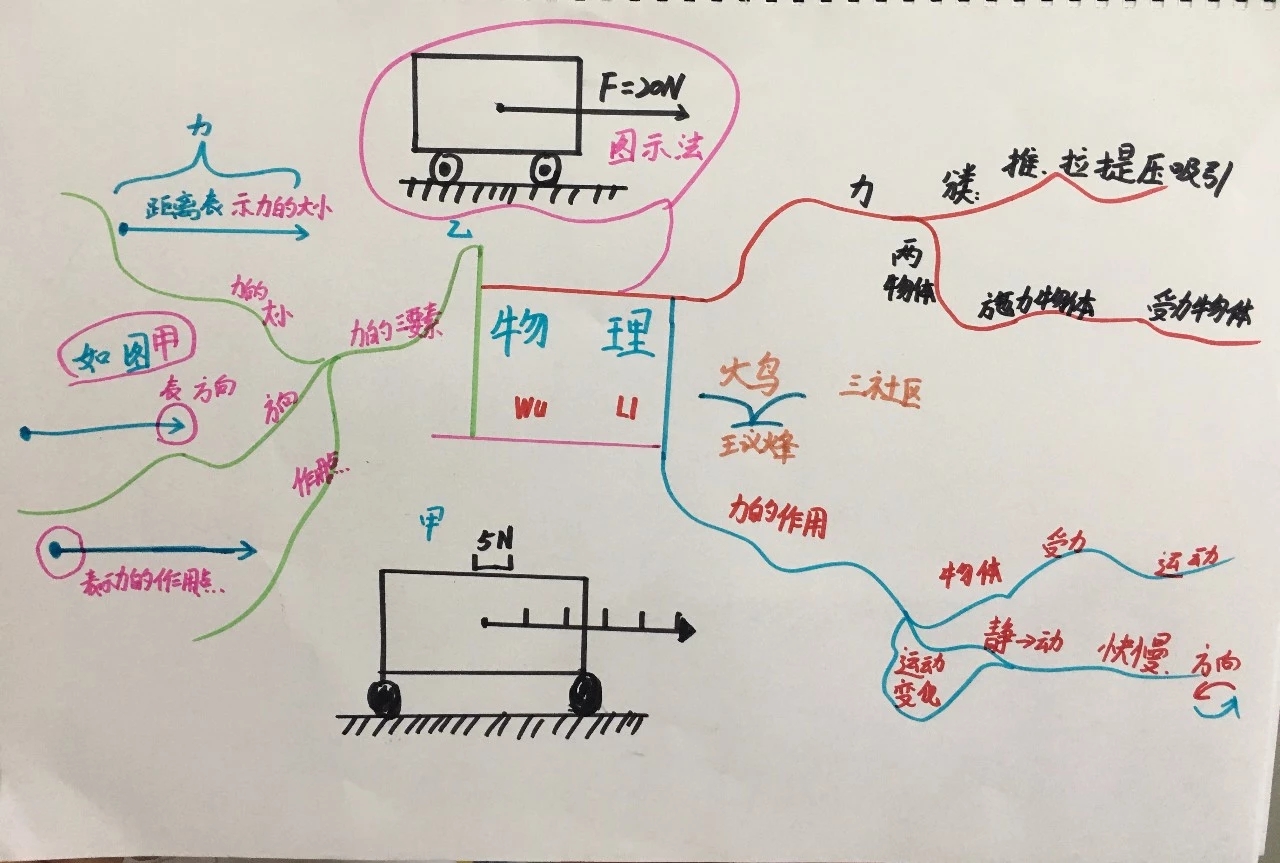 F=20N
图示法
乙
力
距离表示力的大小
力的
大小
如图甲
表方向
方向
力的三要素
作用点
表示力的作用点
物理
Wu LI
力
推、拉提压吸引
两
物体
施力物体
受力物体
火鸟
三社区
王议烽
力的作用
物体
受力
运动
静→动
快慢
方向
运动
变化
甲
5N